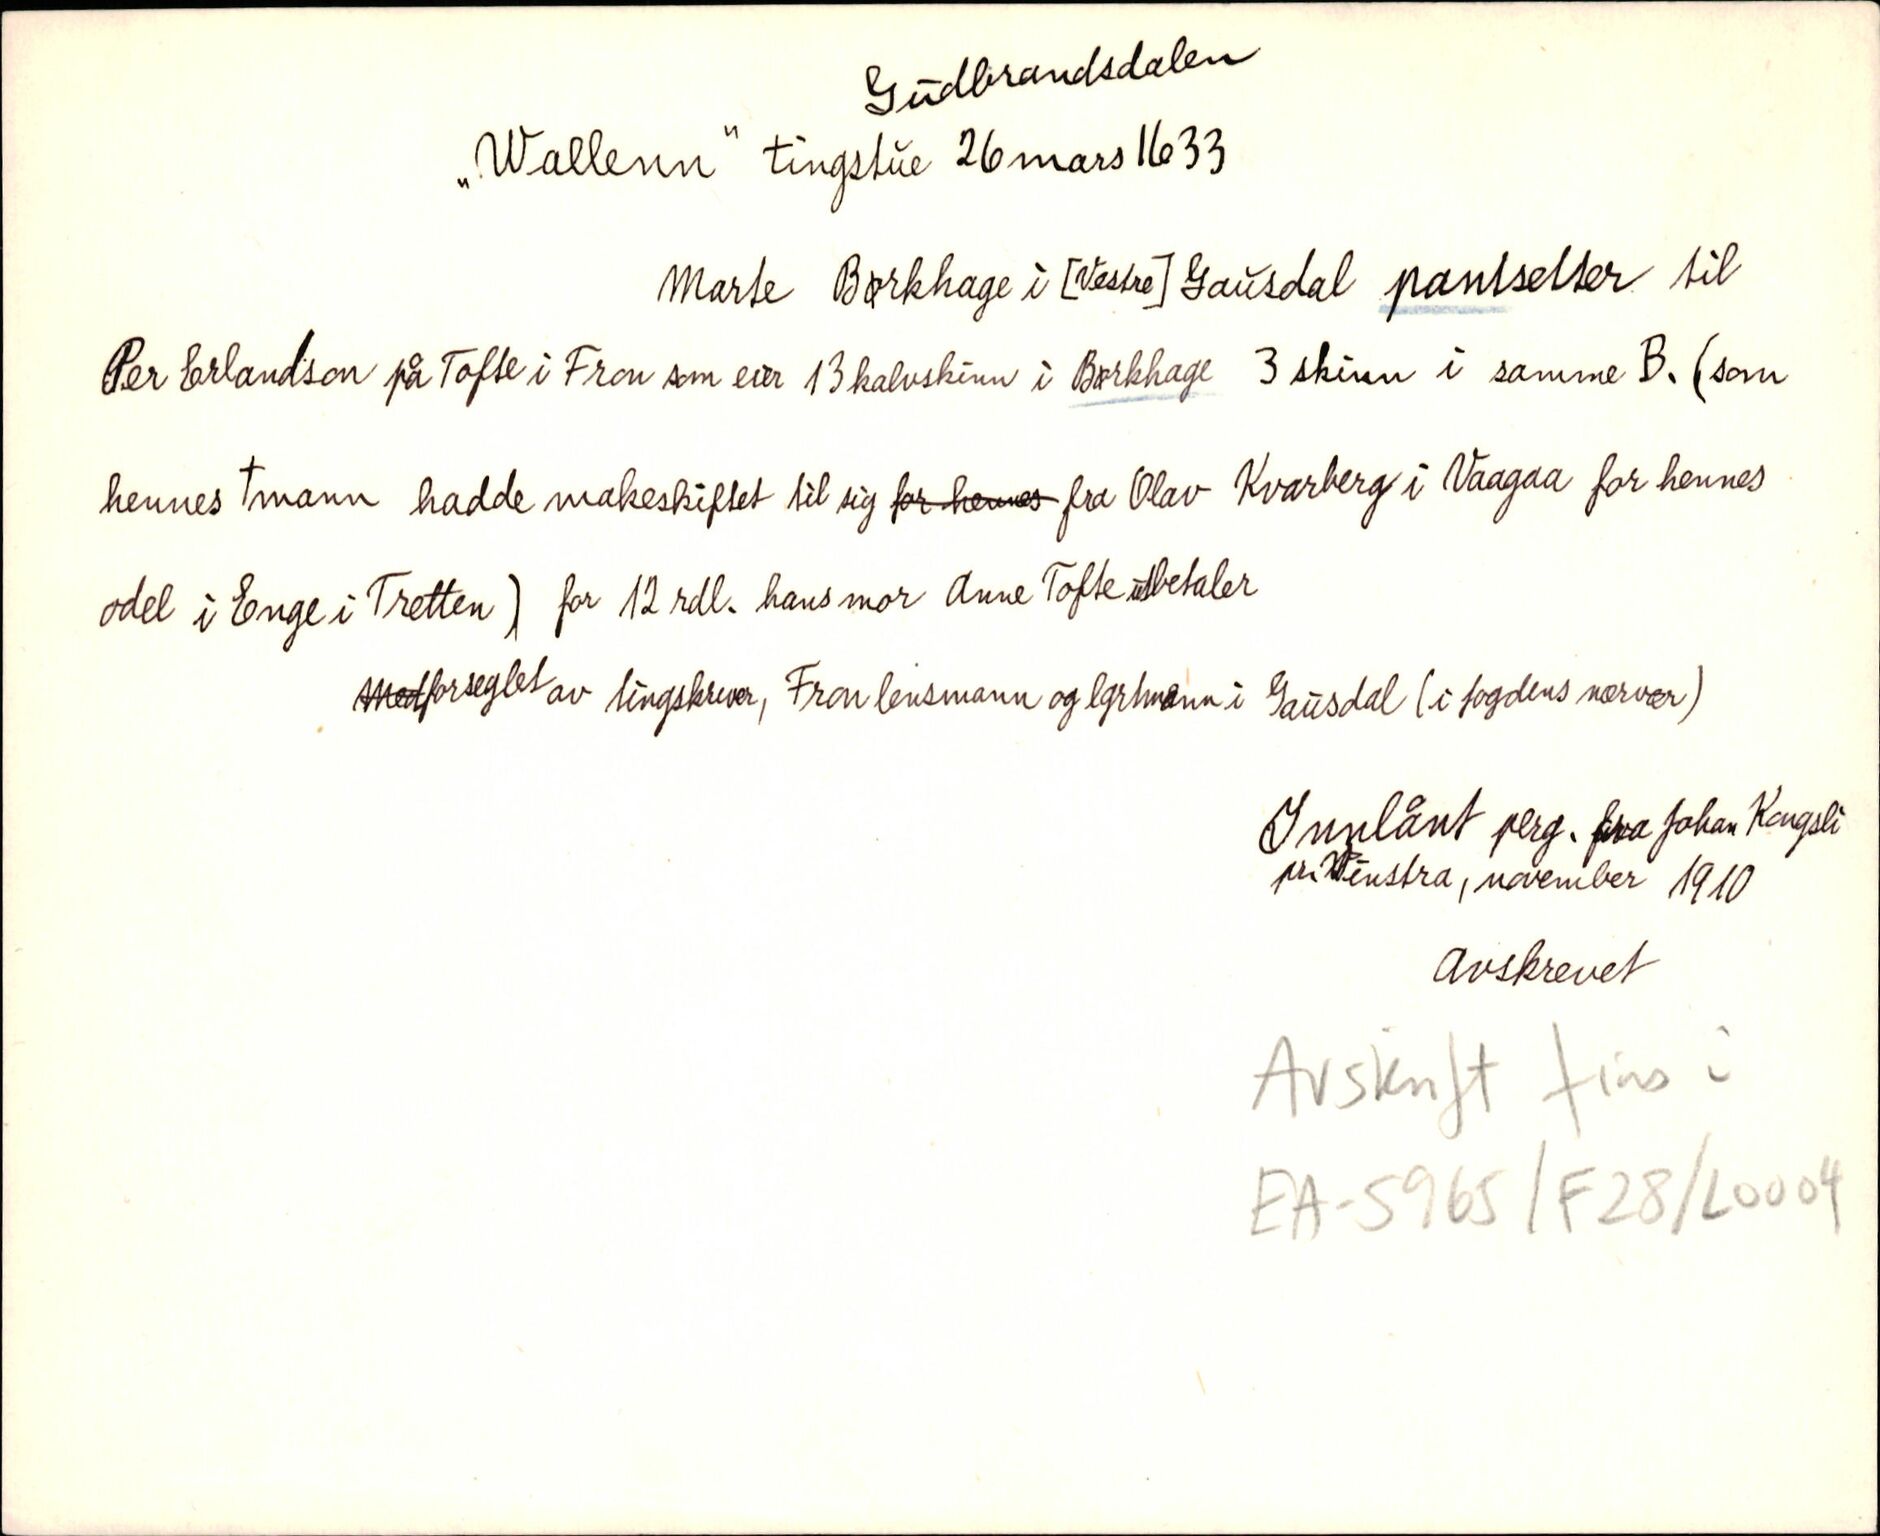 Gudbrandsdalen
„Wallenn“ tingstue 26 mars 1633
Marte Børkhage i [Vestre] Gausdal pantsetter til
Per Erlandson på Tofte i Fron som eier 13 kalvskinn i Børkhage 3 skinn i samme B. (som
hennes †mann hadde makeskiftet til sig for hennes fra Olav Kvarberg i Vaagaa for hennes
odel i Enge i Tretten) for 12 rdl. hans mor Anne Tofte utbetaler
Medforseglet av tingskriver, Fron lensmann og lgrtmann i Gausdal (i fogdens nærvær)
Innlånt perg. fra Johan Kongsli
pr. Vinstra, november 1910
Avskrevet
Avskrift fins i
EA-5965/F28/L0004